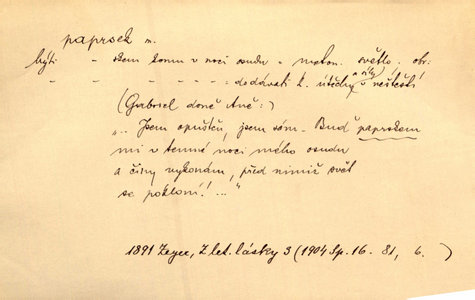 paprsek m.
býti - -skem komu v noci osudu - meton. světlo. obr:
" - - - - - - : dodávati k. útěchy a síly v neštěstí
(Gabriel doně Aně:)
„.. Jsem opuštěn, jsem sám. Buď paprskem
mi v temné noci mého osudu
a činy vykonám, před nimiž svět
se pokloní! ..."
1891 Zeyer, Z let. lásky 3 (1904 Sp. 16. 81, 6. )